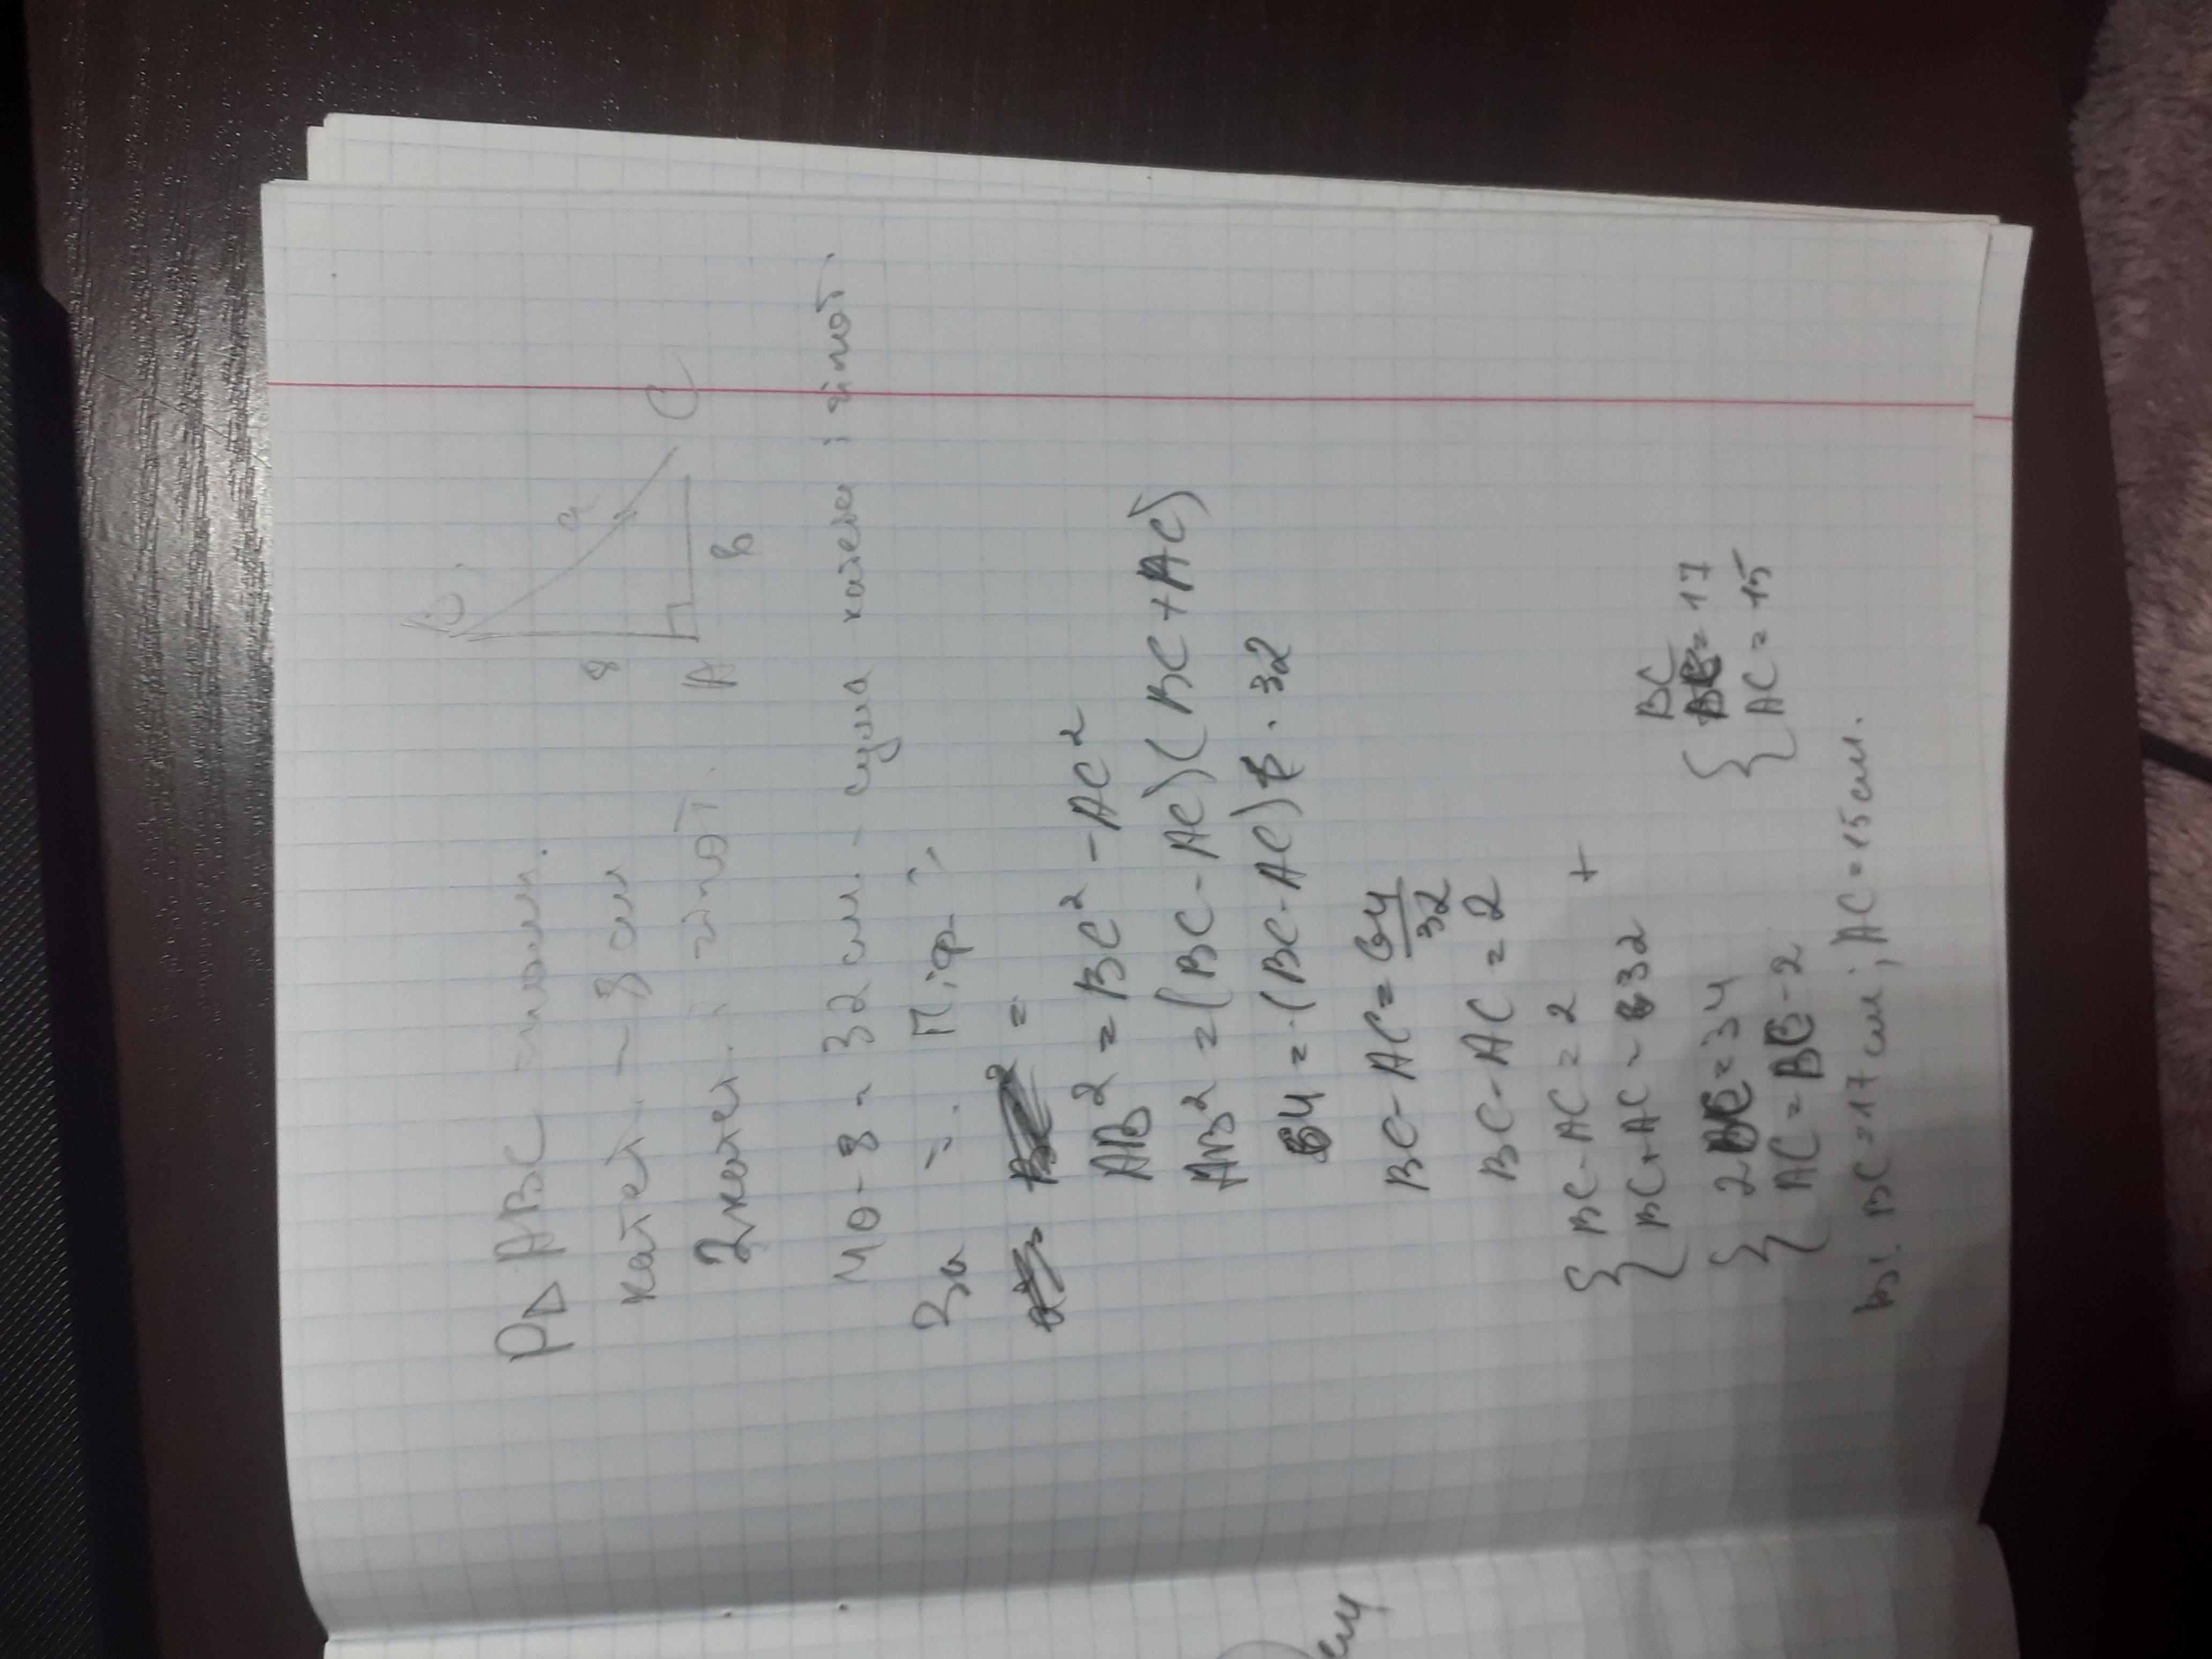 B
a
8
A
C
в
P∆ ABC
катет - 8 см
2 катет. і гіпот.
40 - 8 = 32 см. - сума катета і гіпот.
За т. Піф.:
AB² = BC² - AC²
AB² = (BC - AC)(BC + AC)
64 = (BC - AC) · 32
BC - AC = 64/32
BC - AC = 2
{ BC - AC = 2 +
{ BC + AC = 32
{ 2BC = 34
{ AC = BC - 2
{ BC = 17
{ AC = 15
Ві: BC = 17 см; AC = 15 см.
см